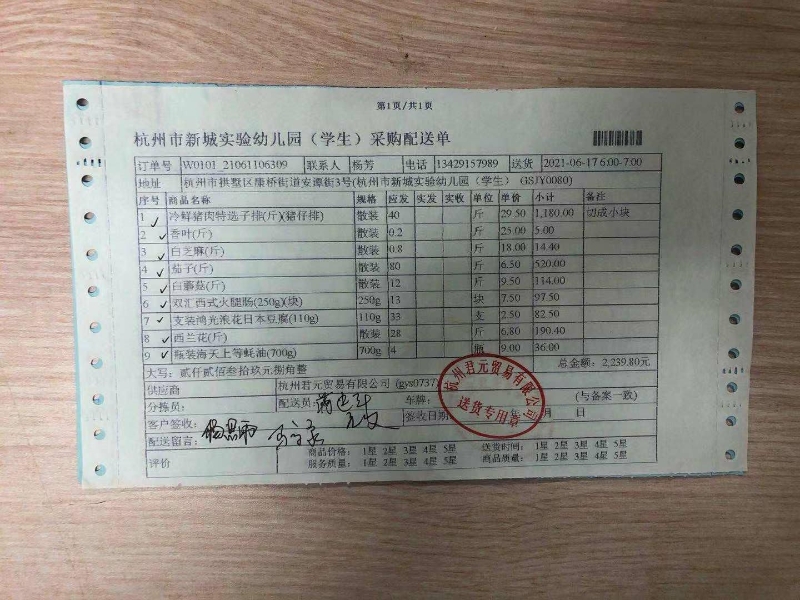 第1页/共1页
杭州市新城实验幼儿园（学生）采购配送单
订单号 W0101_21061106309 联系人 杨芳 电话 13429157989 送货 2021-06-17 6:00-7:00
地址 杭州市拱墅区康桥街道安潭街3号(杭州市新城实验幼儿园（学生） GSJY0080)
序号 商品名称 规格 应发 实发 实收 单位 单价 小计 备注
1 冷鲜猪肉特选子排(斤)(猪仔排) 散装 40 斤 29.50 1,180.00 切成小块
2 香叶(斤) 散装 0.2 斤 25.00 5.00
3 白芝麻(斤) 散装 0.8 斤 18.00 14.40
4 茄子(斤) 散装 80 斤 6.50 520.00
5 白蘑菇(斤) 散装 12 斤 9.50 114.00
6 双汇西式火腿肠(250g)(块) 250g 13 块 7.50 97.50
7 支装鸿光浪花日本豆腐(110g) 110g 33 支 2.50 82.50
8 西兰花(斤) 散装 28 斤 6.80 190.40
9 瓶装海天上等蚝油(700g) 700g 4 瓶 9.00 36.00
大写: 贰仟贰佰叁拾玖元捌角整 总金额: 2,239.80元
供应商 杭州君元贸易有限公司 (gys0737)
分拣员: 配送员: 车牌: (与备案一致)
客户签收: 签收日期 年 月 日
配送留言:
评价 商品价格: 1星 2星 3星 4星 5星 送货时间: 1星 2星 3星 4星 5星
服务质量: 1星 2星 3星 4星 5星 商品质量: 1星 2星 3星 4星 5星
杭州君元贸易有限公司
送货专用章